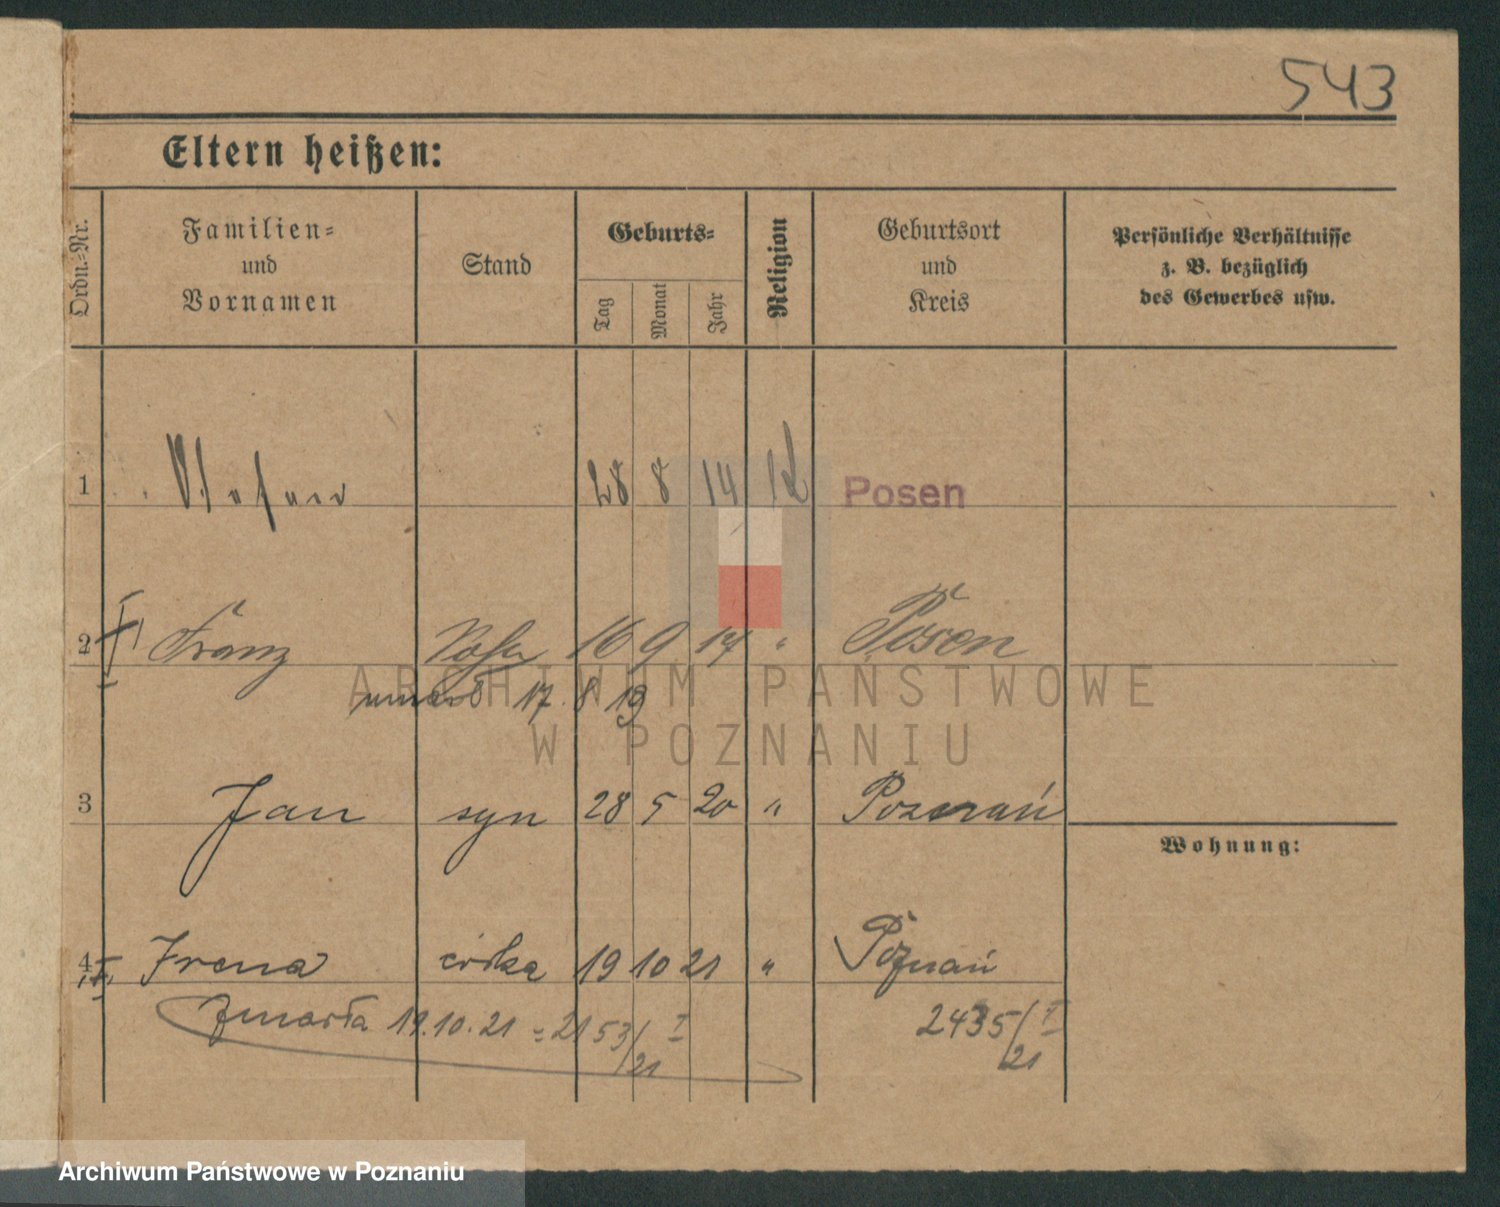 543
Eltern heißen:
Ordn.-Nr.
Familien- und Vornamen
Stand
Geburts-
Tag
Monat
Jahr
Religion
Geburtsort und Kreis
Persönliche Verhältnisse z. B. bezüglich des Gewerbes usw.
1 Stefan 28 8 14 k Posen
2 Franz Sohn 16 9 17 " Posen
umarł 17.8.19
3 Jan syn 28 5 20 " Poznań
Wohnung:
4 Irena córka 19 10 21 " Poznań
Zmarła 19.10.21 = 2153/21 I 2435/21 I
ARCHIWUM PAŃSTWOWE
W POZNANIU
Archiwum Państwowe w Poznaniu